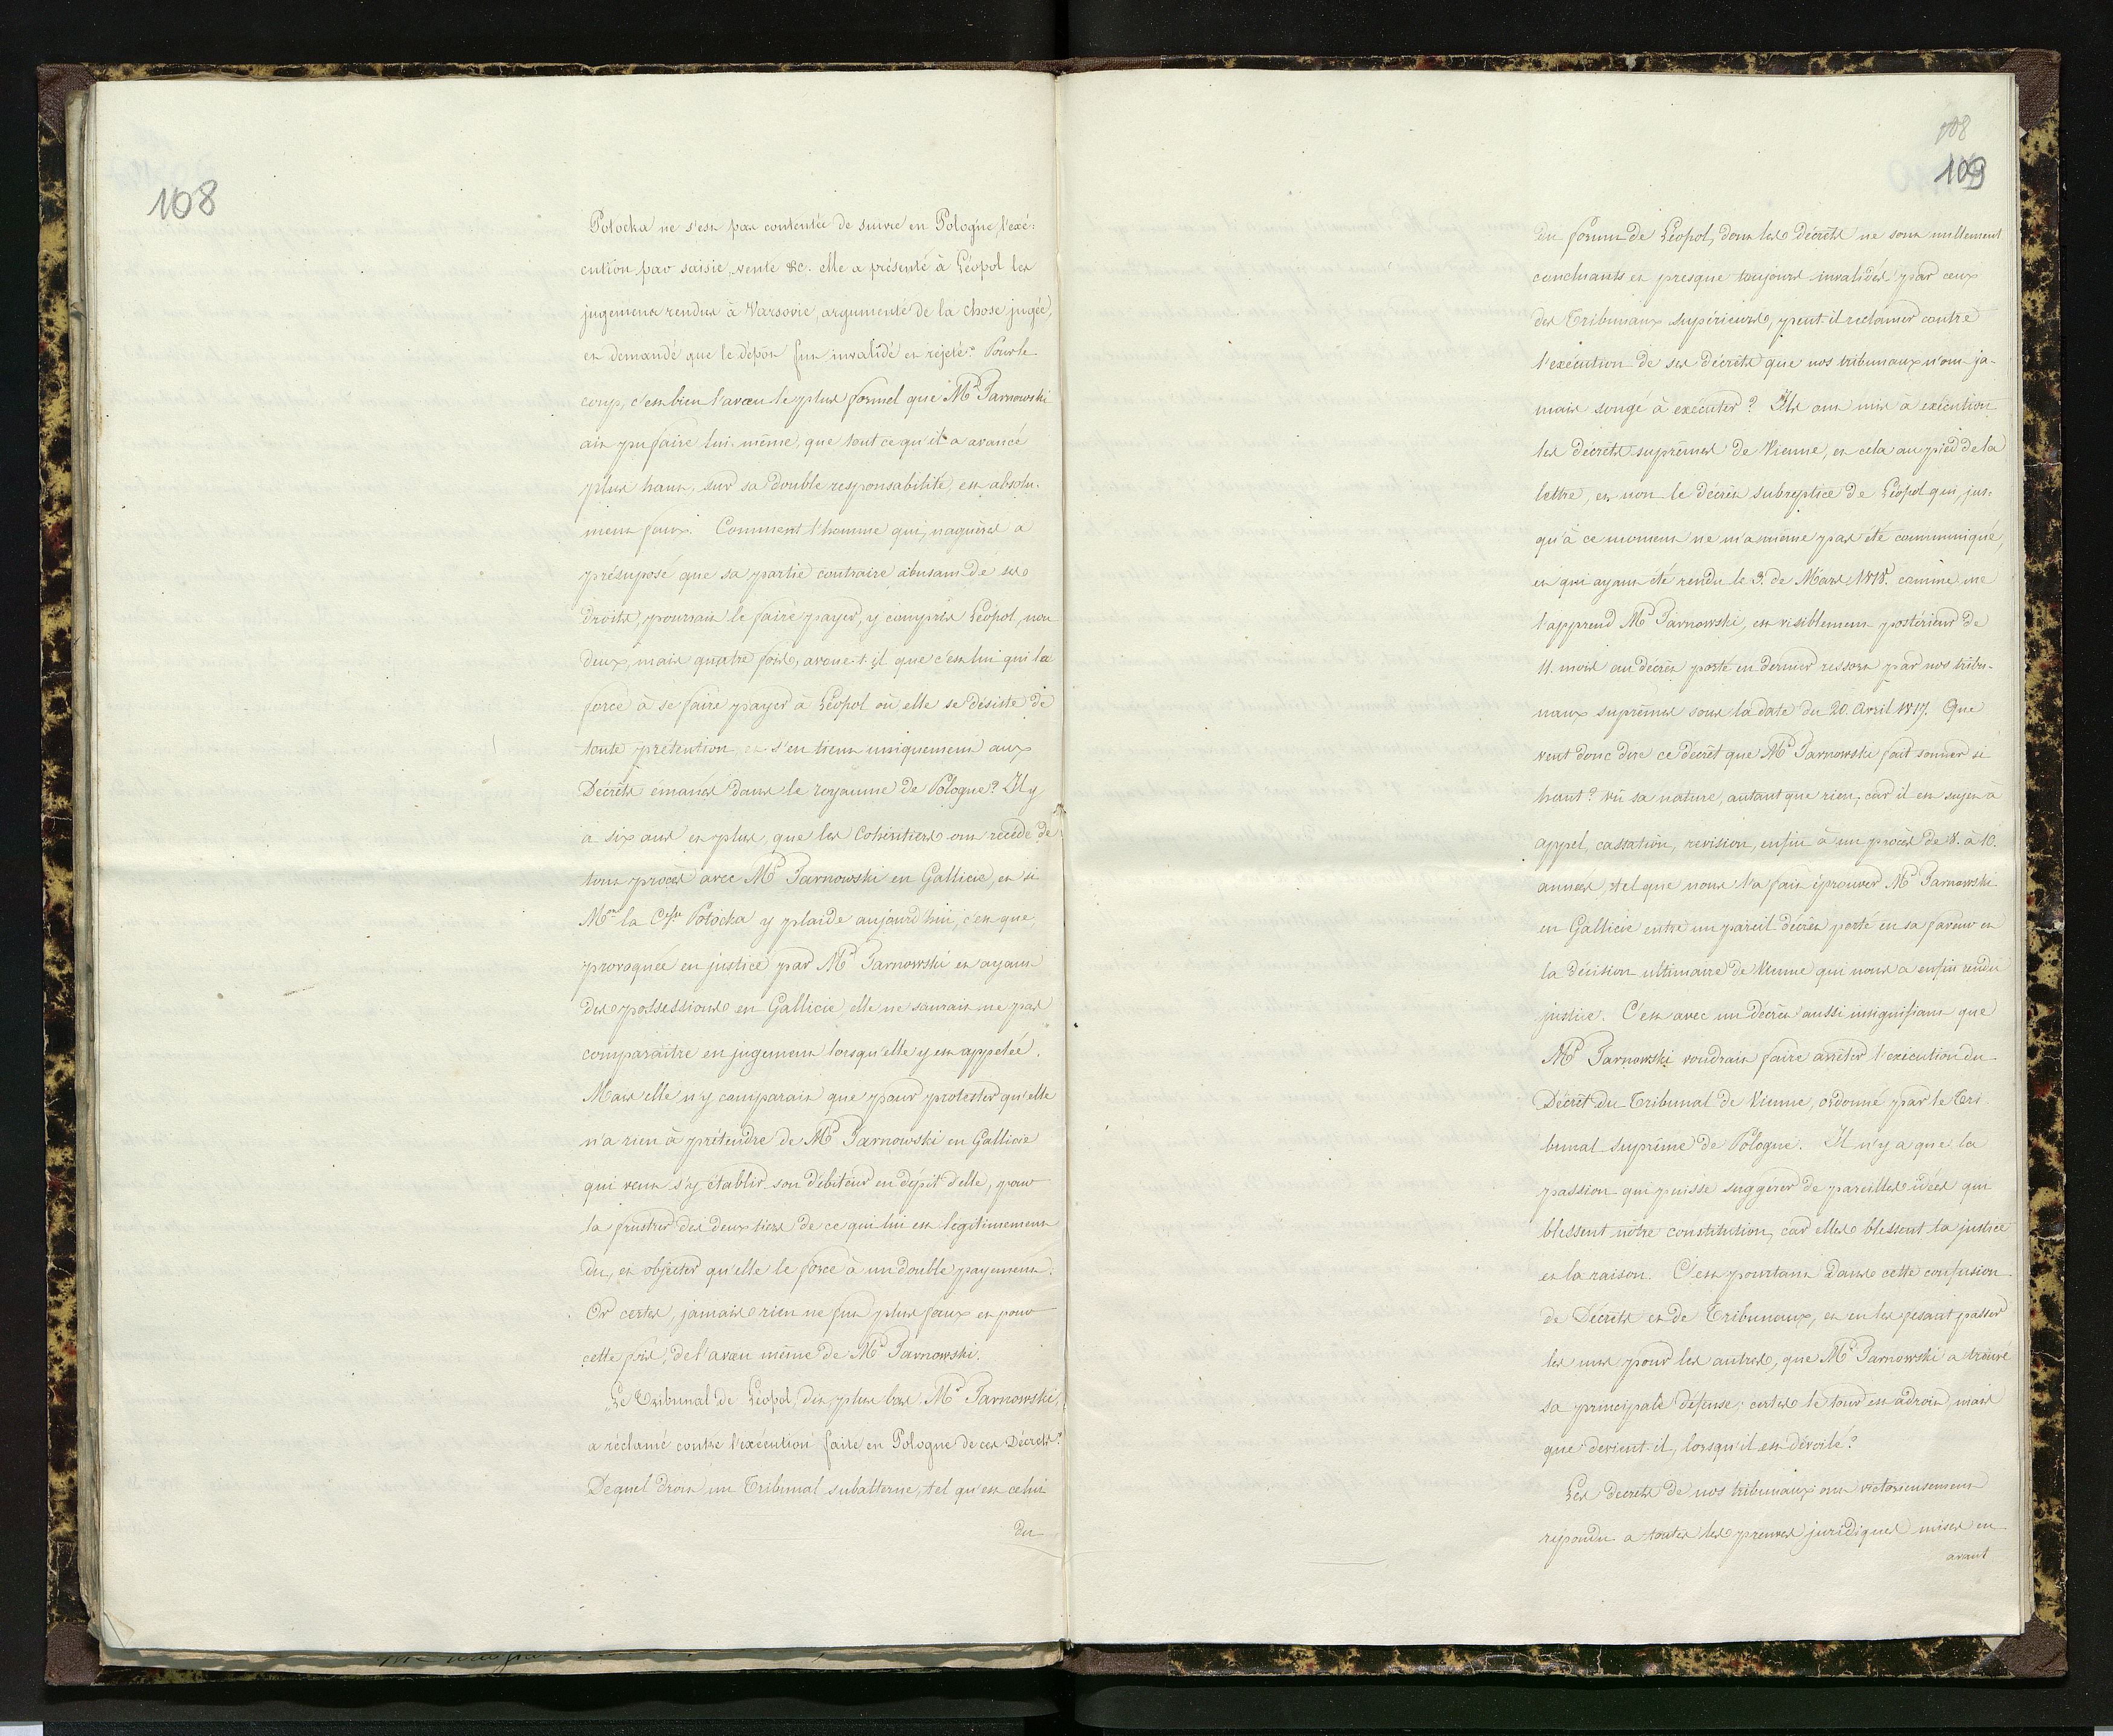 108
Potocka ne s'est pas contentée de suivre en Pologne l'exé-
cution par saisie, vente &c. elle a présenté à Léopol les
jugemens rendus à Varsovie, argumenté de la chose jugée,
et demandé que le dépôt fut invalidé et rejeté." Pour le
coup, c'est bien l'aveu le plus formel que Mr Tarnowski
ait pu faire lui-même, que tout ce qu'il a avancé
plus haut, sur sa double responsabilité, est absolu-
ment faux. Comment l'homme qui, naguères a
présuposé que sa partie contraire abusant de ses
droits, pourrait le faire payer, y compris Léopol, non
deux, mais quatre fois, avoue-t-il que c'est lui qui la
force à se faire payer à Léopol où elle se désiste de
toute prétention, et s'en tient uniquement aux
Décrets émanés dans le royaume de Pologne? Il y
a six ans et plus, que les Cohéritiers ont recédé de
tout procès avec Mr Tarnowski en Gallicie, et si
Mme la Csse Potocka y plaide aujourd'hui, c'est que,
provoquée en justice par Mr Tarnowski et ayant
des possessions en Gallicie elle ne saurait ne pas
comparaître en jugement lorsqu'elle y est appelée.
Mais elle n'y comparait que pour protester qu'elle
n'a rien à prétendre de Mr Tarnowski en Gallicie
qui veut s'y établir son débiteur en dépit d'elle, pour
la frustrer des deux tiers de ce qui lui est legitimement
du, et objecter qu'elle le force à un double payement.
Or certes, jamais rien ne fut plus faux et pour
cette fois, de l'aveu même de Mr Tarnowski.
„Le Tribunal de Léopol, dit plus bas Mr Tarnowski,
a réclamé contre l'exécution faite en Pologne de ces Décrets."
De quel droit un Tribunal subalterne, tel qu'est celui
du
108
109
du forum de Léopol, dont les décrets ne sont nullement
concluants et presque toujours invalidés par ceux
des Tribunaux supérieurs, peut-il reclamer contre
l'exécution de ses décrets que nos tribunaux n'ont ja-
mais songé à exécuter? Ils ont mis à exécution
les décrets suprêmes de Vienne, et cela au pied de la
lettre, et non le décret subreptice de Léopol qui, jus-
qu'à ce moment ne m'a même pas été communiqué,
et qui ayant été rendu le 3. de Mars 1818. comme me
l'apprend Mr Tarnowski, est visiblement postérieur de
11. mois au décret porté en dernier ressort par nos tribu-
naux suprêmes sous la date du 20. Avril 1817. Que
veut donc dire ce décret que Mr Tarnowski fait sonner si
haut? vû sa nature, autant que rien; car il est sujet à
appel, cassation, revision, enfin à un procès de 8. à 10.
années, tel que nous l'a fait éprouver Mr Tarnowski
en Gallicie entre un pareil décret porté en sa faveur et
la décision ultimaire de Vienne qui nous a enfin rendu
justice. C'est avec un décret aussi insignifiant que
Mr Tarnowski voudrait faire arrêter l'exécution du
Décret du Tribunal de Vienne, ordonné par le Tri-
bunal Suprême de Pologne. Il n'y a que la
passion qui puisse suggérer de pareilles idées qui
blessent nôtre constitution, car elles blessent la justice
et la raison. C'est pourtant dans cette confusion
de Décrets et de Tribunaux, et en les fesant passer
les uns pour les autres, que Mr Tarnowski a trouvé
sa principale défense; certes le tour est adroit, mais
que devient-il, lorsqu'il est dévoilé?
Les decrets de nos tribunaux ont victorieusement
repondu a toutes les preuves juridiques mises en
avant